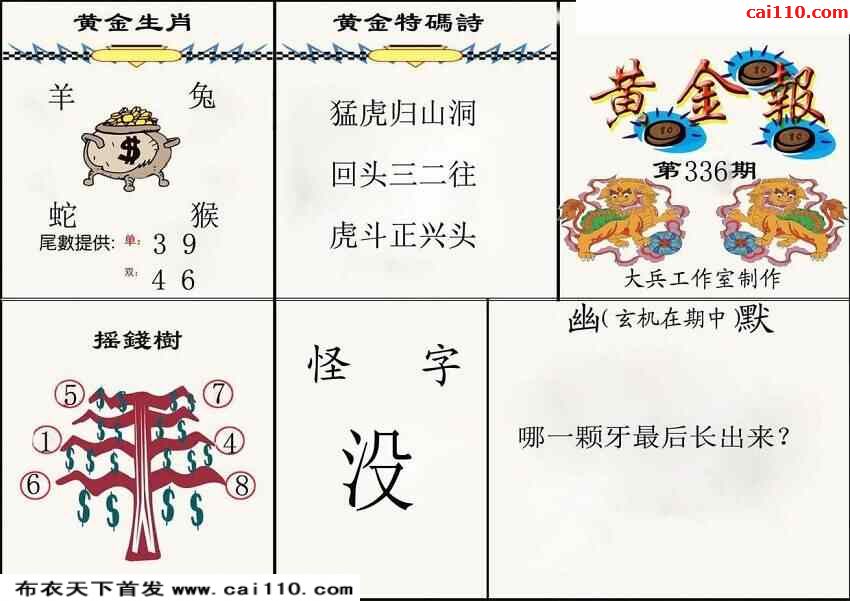 cai110.com
黄金生肖
羊 兔
$
蛇 猴
尾數提供: 单: 3 9
双: 4 6
黄金特碼詩
猛虎归山洞
回头三二往
虎斗正兴头
黄金報
10
10
10
第336期
大兵工作室制作
摇錢樹
5 7
1 4
6 8
$ $ $ $
$ $ $ $
$ $ $ $
$ $ $ $
怪 字
没
幽(玄机在期中)默
哪一颗牙最后长出来？
布衣天下首发 www.cai110.com